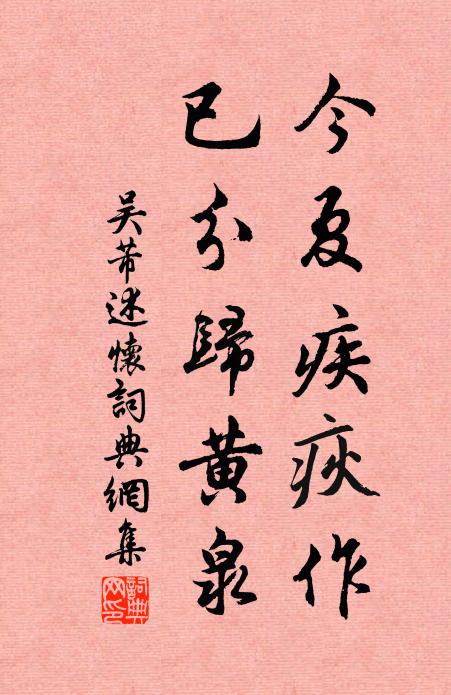 今夏疾疢作
已分歸黃泉
吴芾述懷詞典網集
詞典网印